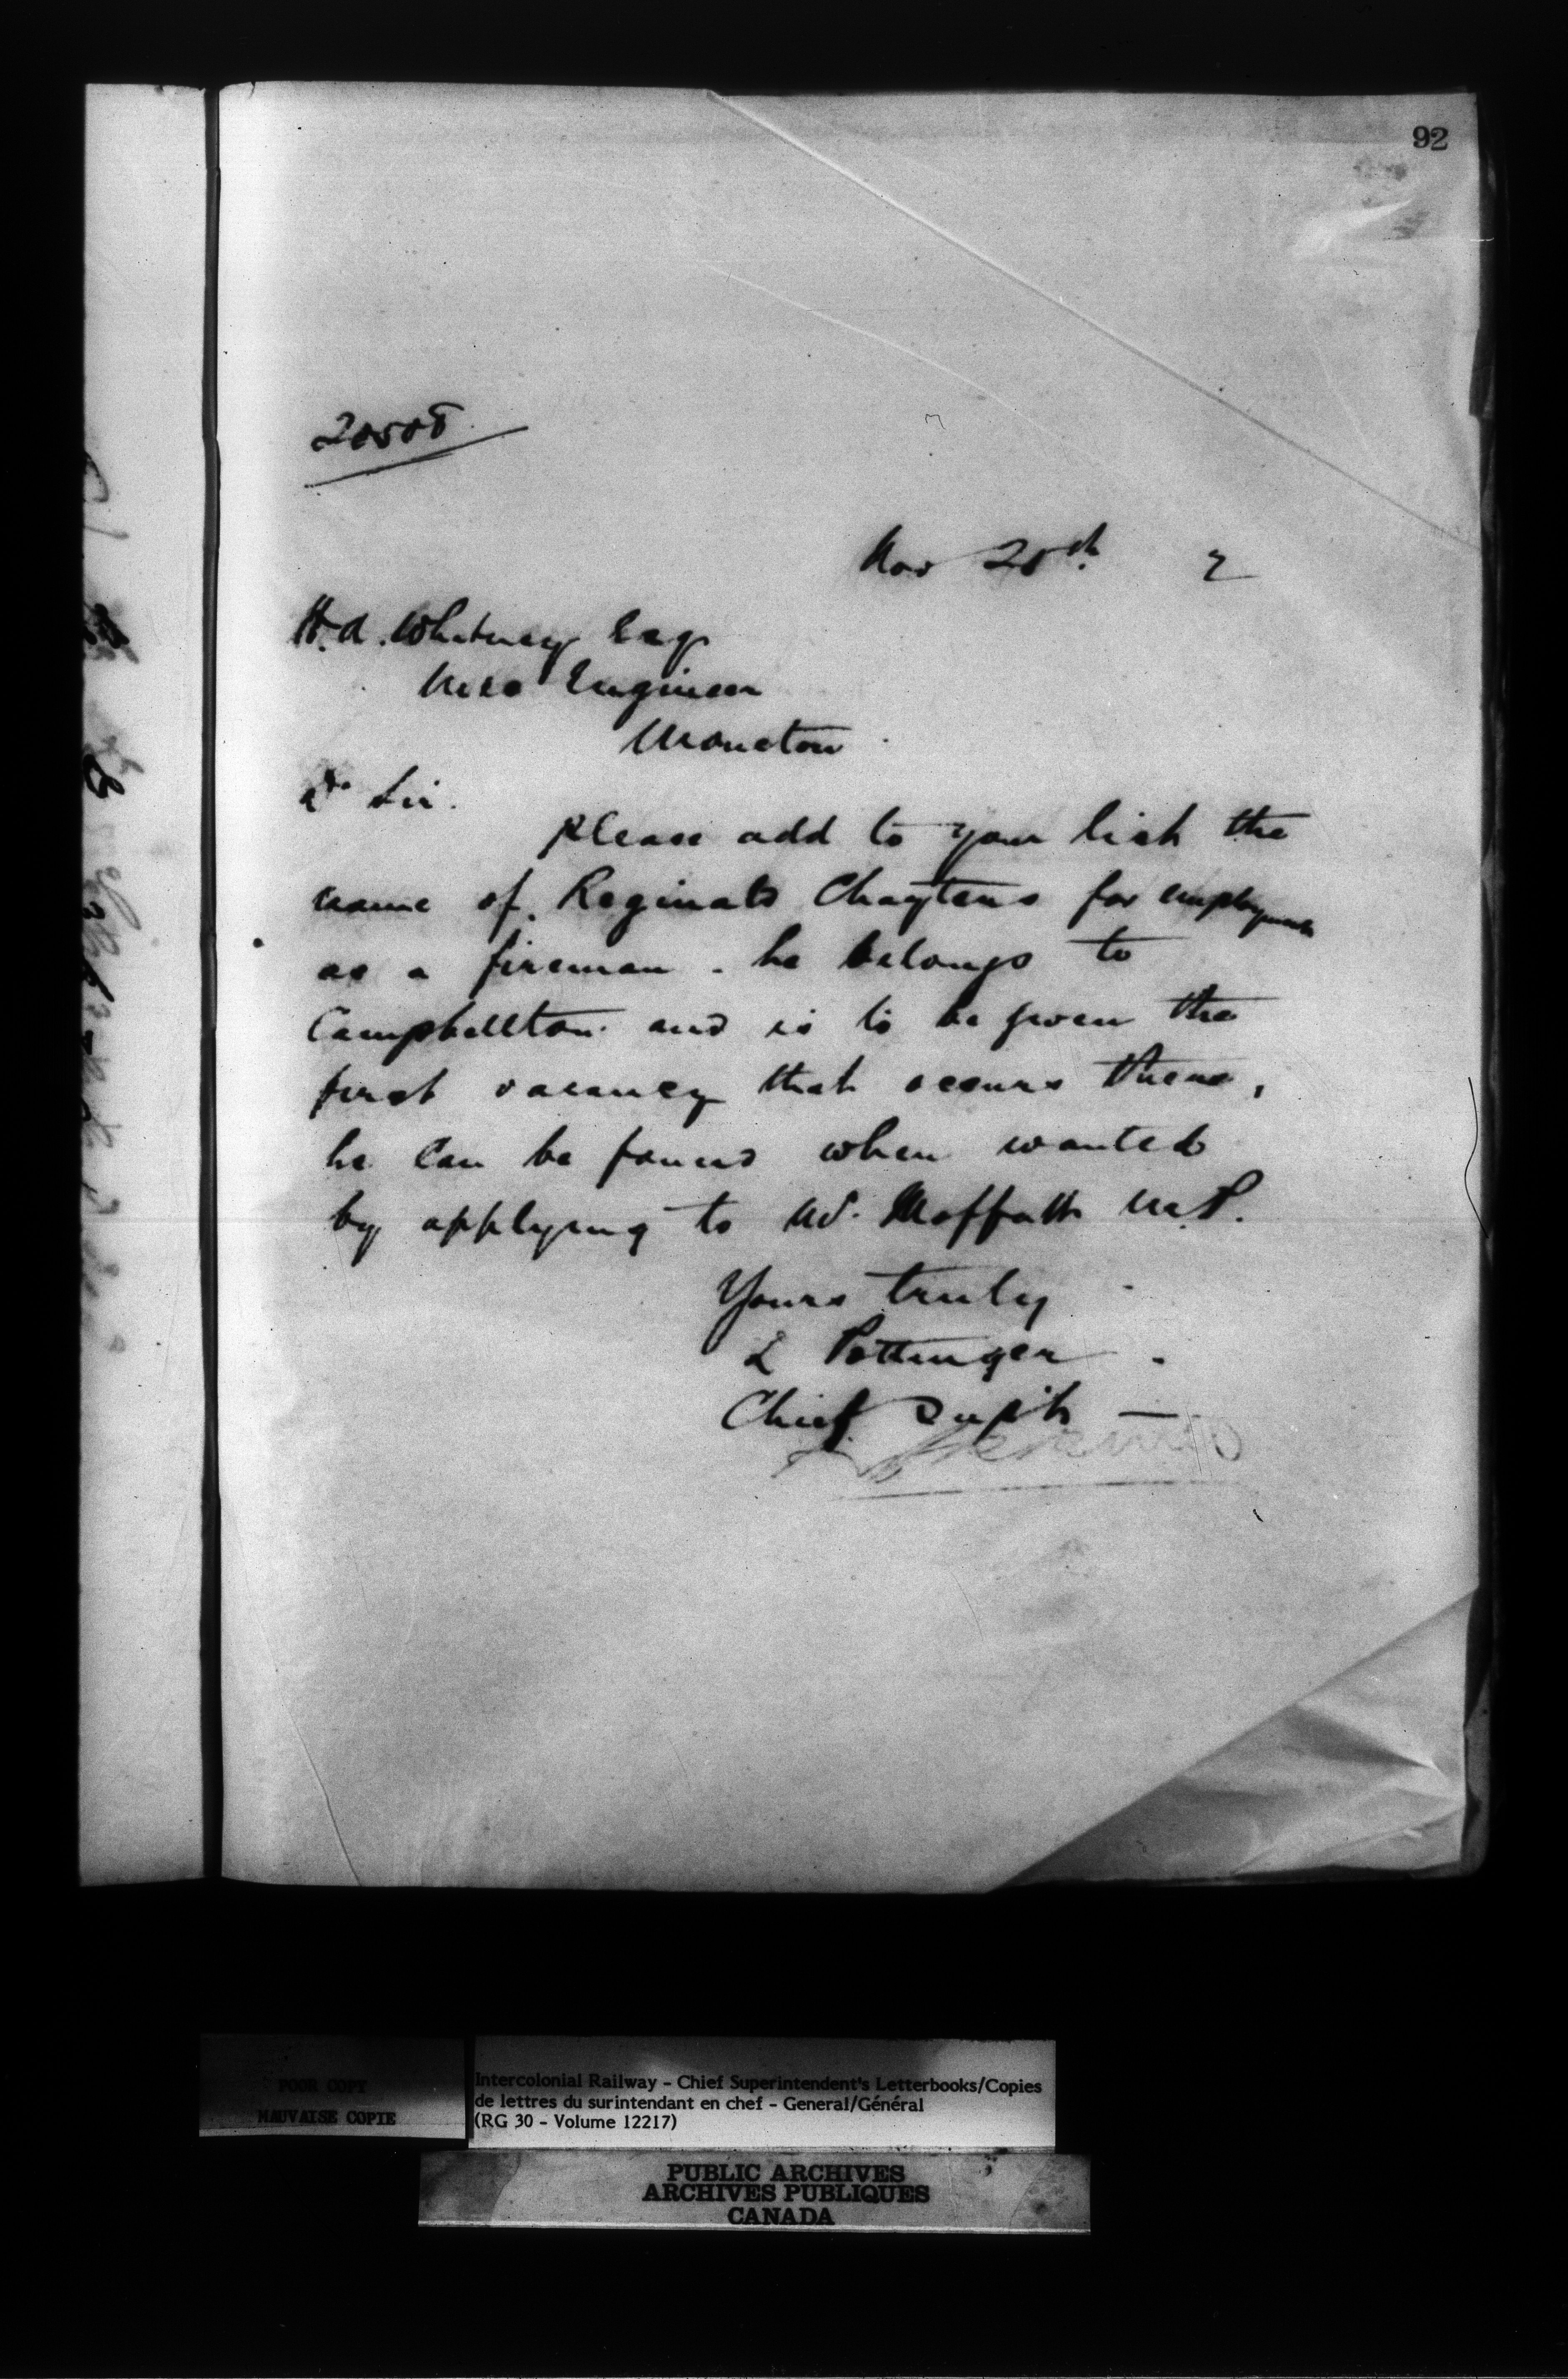 92
20508
Nov 28th 7
H.A. Whitney Esq
Mec Engineer
Moncton
Dr Sir.
Please add to your list the
name of Reginald Chaytens for employment
as a fireman. he belongs to
Campbellton and is to be given the
first vacancy that occurs there,
he can be found when wanted
by applying to Mr. Moffatt M.P.
Yours truly
D Pottinger
Chief Supt
POOR COPY
MAUVAISE COPIE
Intercolonial Railway - Chief Superintendent's Letterbooks/Copies
de lettres du surintendant en chef - General/Général
(RG 30 - Volume 12217)
PUBLIC ARCHIVES
ARCHIVES PUBLIQUES
CANADA